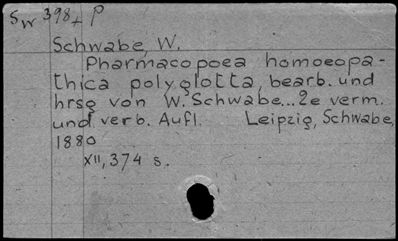 Sw 398L P
Schwabe, W.
Pharmacopoea homoeopa-
thica polyglotta, bearb. und
hrsg von W. Schwabe... 2e verm.
und verb. Aufl. Leipzig, Schwabe,
1880
XII, 374 s.